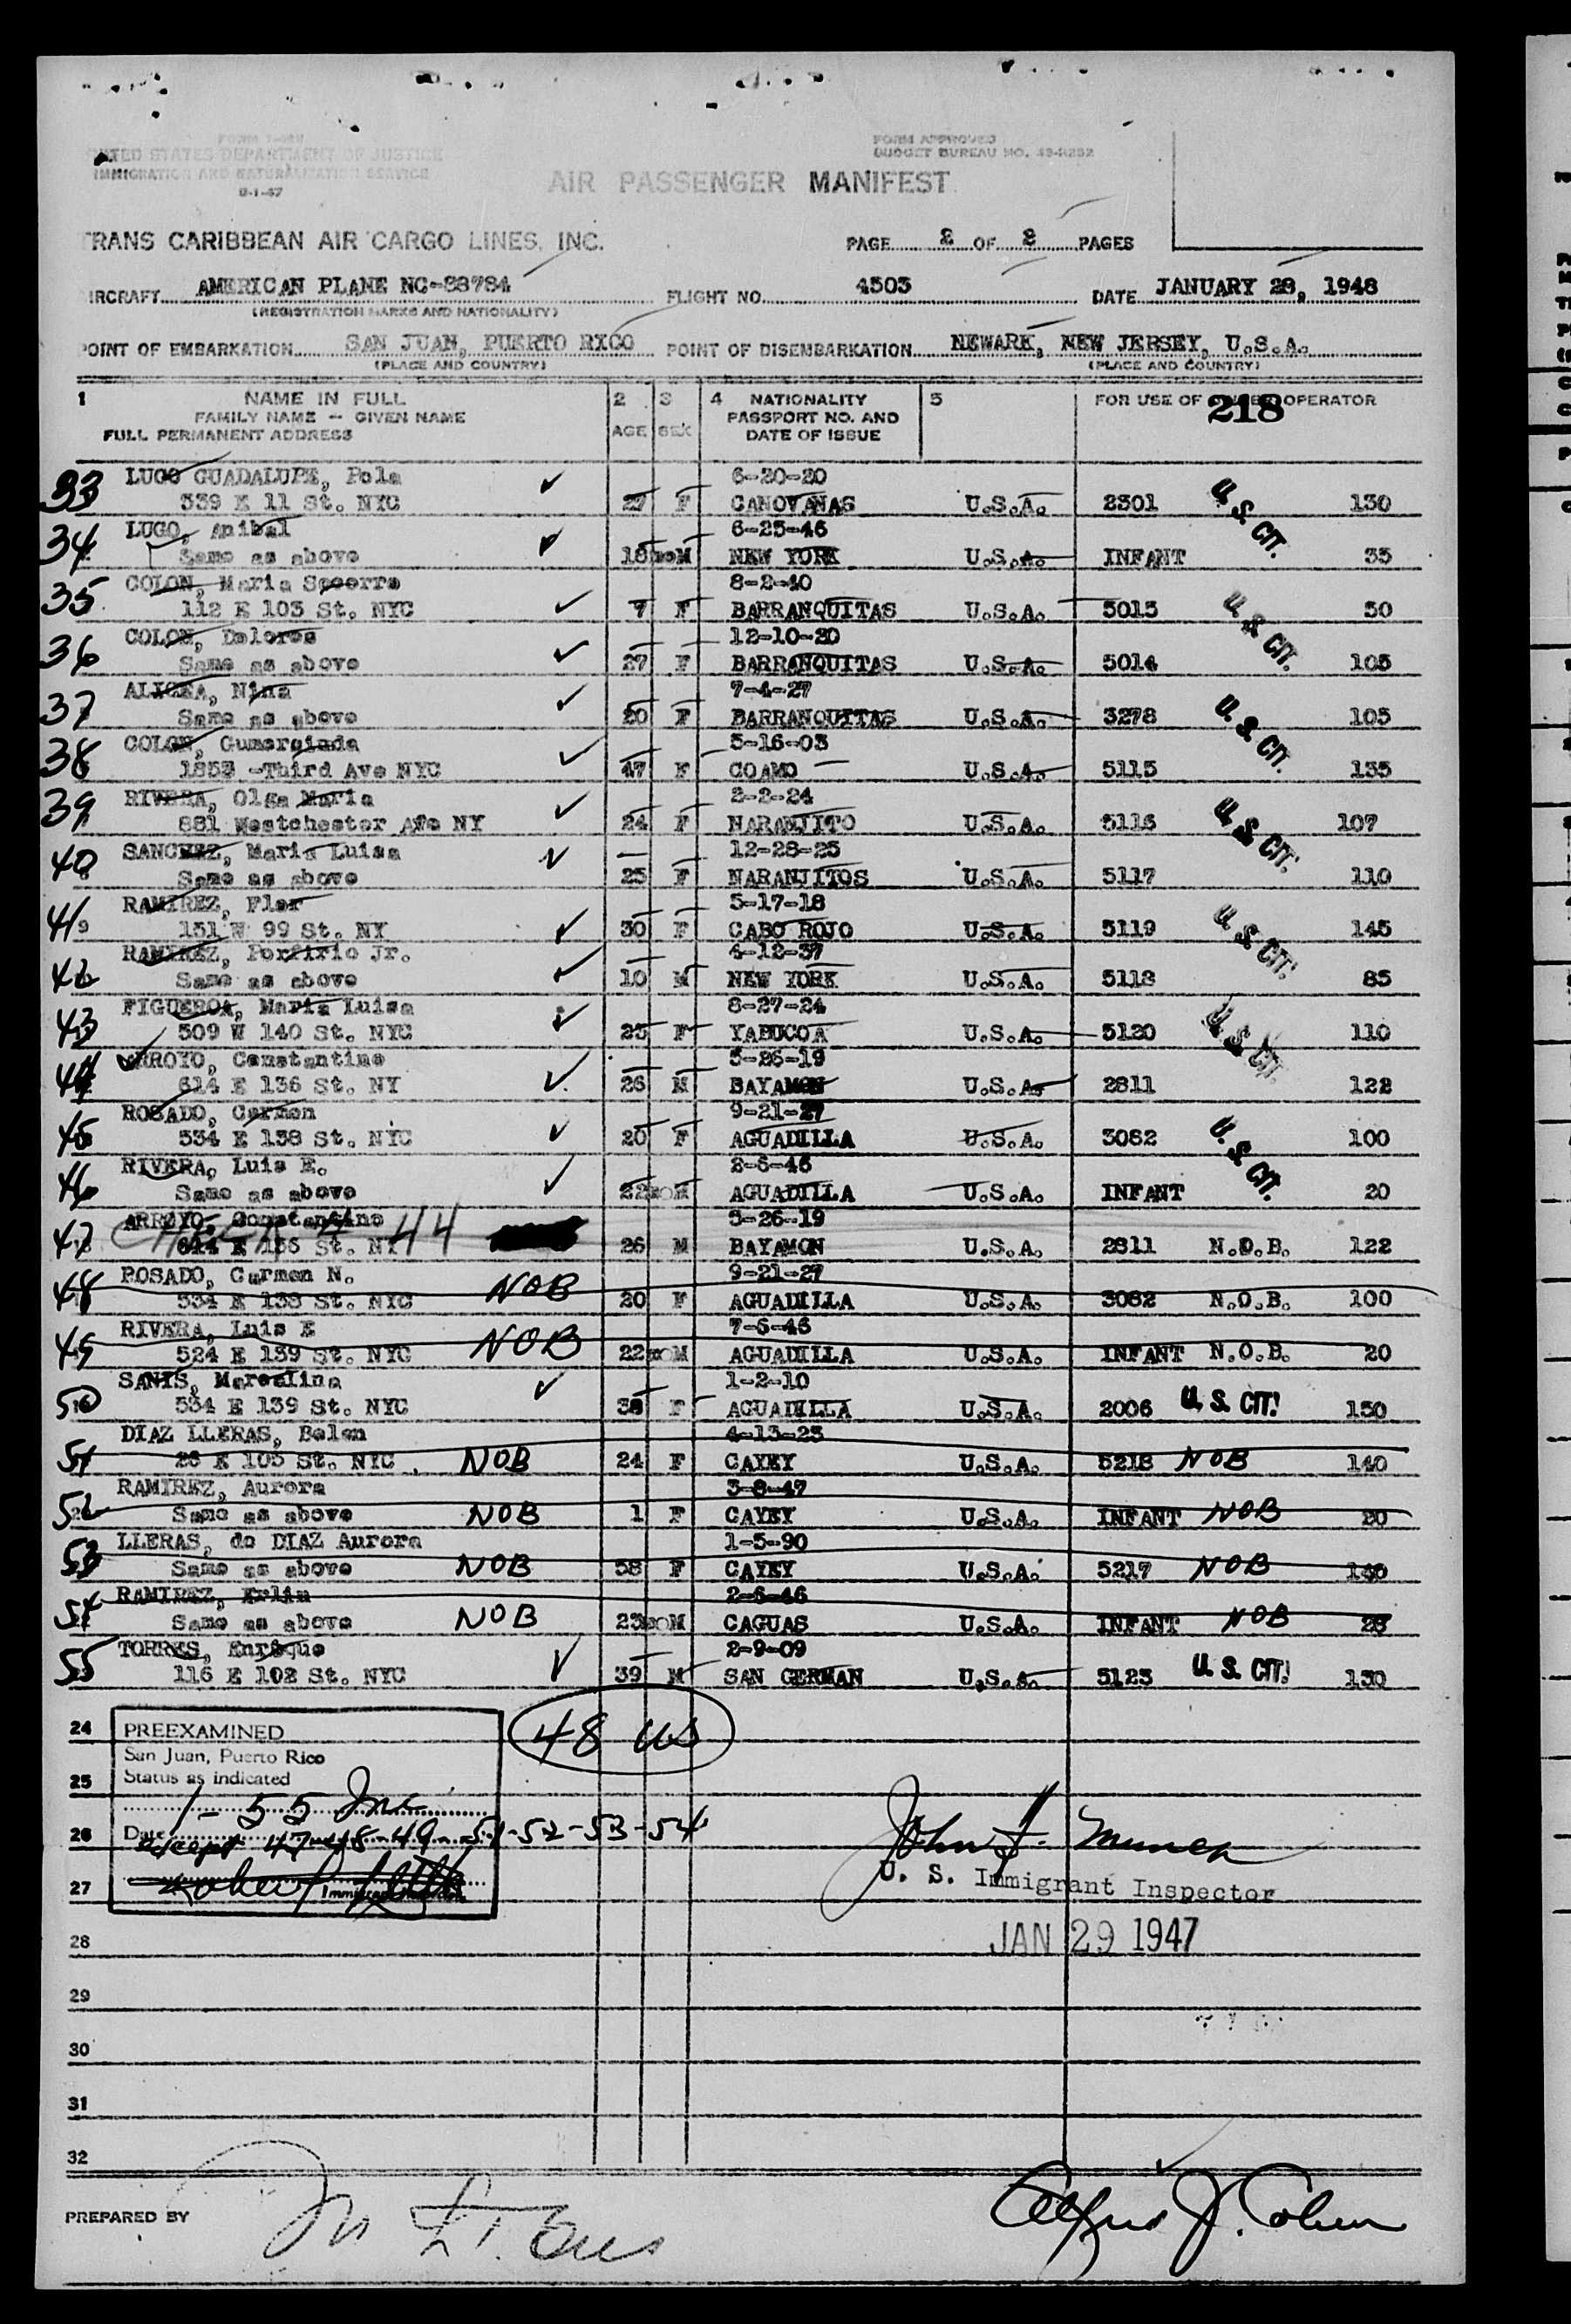 FORM APPROVED
UNITED STATES DEPARTMENT OF JUSTICE
BUDGET BUREAU NO. 43-R252
IMMIGRATION AND NATURALIZATION SERVICE
AIR PASSENGER MANIFEST
TRANS CARIBBEAN AIR CARGO LINES, INC.
PAGE 2 OF 2 PAGES
AIRCRAFT AMERICAN PLANE NC-88784 FLIGHT NO. 4503 DATE JANUARY 28, 1948
(REGISTRATION MARKS AND NATIONALITY)
POINT OF EMBARKATION SAN JUAN, PUERTO RICO POINT OF DISEMBARKATION NEWARK, NEW JERSEY, U.S.A.
(PLACE AND COUNTRY) (PLACE AND COUNTRY)
1 NAME IN FULL 2 3 4 NATIONALITY 5 FOR USE OF OPERATOR
218
FAMILY NAME — GIVEN NAME PASSPORT NO. AND
FULL PERMANENT ADDRESS AGE SEX DATE OF ISSUE
33 LUGO GUADALUPE, Pola 6-20-20
339 E 11 St. NYC 27 F CANOVANAS U.S.A. 2301 U.S. CIT. 130
34 LUGO, Anibal 6-25-46
Same as above 18 mo M NEW YORK U.S.A. INFANT 35
35 COLON, Maria Socorro 8-2-40
112 E 103 St. NYC 7 F BARRANQUITAS U.S.A. 5013 U.S. CIT. 50
36 COLON, Dolores 12-10-20
Same as above 27 F BARRANQUITAS U.S.A. 5014 105
37 ALICEA, Nina 7-4-27
Same as above 20 F BARRANQUITAS U.S.A. 3278 U.S. CIT. 105
38 COLON, Gumersinda 5-16-03
1853 -Third Ave NYC 47 F COAMO U.S.A. 5115 135
39 RIVERA, Olga Maria 2-2-24
881 Westchester Ave NY 24 F NARANJITO U.S.A. 5116 U.S. CIT. 107
40 SANCHEZ, Maria Luisa 12-28-25
Same as above 25 F NARANJITOS U.S.A. 5117 110
41 RAMIREZ, Flor 5-17-18
151 W 99 St. NY 30 F CABO ROJO U.S.A. 5119 U.S. CIT. 145
42 RAMIREZ, Porfirio Jr. 4-12-37
Same as above 10 M NEW YORK U.S.A. 5118 85
43 FIGUEROA, Maria Luisa 8-27-24
509 W 140 St. NYC 23 F YABUCOA U.S.A. 5120 U.S. CIT. 110
44 ARROYO, Constantino 5-26-19
614 E 136 St. NY 26 M BAYAMON U.S.A. 2811 122
45 ROSADO, Carmen 9-21-27
534 E 138 St. NYC 20 F AGUADILLA U.S.A. 3082 U.S. CIT. 100
46 RIVERA, Luis E. 2-6-46
Same as above 22 mo M AGUADILLA U.S.A. INFANT 20
47 ARROYO, Constantino 44 5-26-19
614 E 136 St. NY 26 M BAYAMON U.S.A. 2811 N.O.B. 122
48 ROSADO, Carmen N. NOB 9-21-27
534 E 138 St. NYC 20 F AGUADILLA U.S.A. 3082 N.O.B. 100
49 RIVERA, Luis E NOB 7-6-46
524 E 139 St. NYC 22 mo M AGUADILLA U.S.A. INFANT N.O.B. 20
50 SANIS, Marcelina 1-2-10
534 E 139 St. NYC 38 F AGUADILLA U.S.A. 2006 U.S. CIT. 150
51 DIAZ LLERAS, Belen 4-13-23
26 E 105 St. NYC NOB 24 F CAYEY U.S.A. 5218 NOB 140
52 RAMIREZ, Aurora 3-8-47
Same as above NOB 1 F CAYEY U.S.A. INFANT NOB 20
53 LLERAS, de DIAZ Aurora 1-5-90
Same as above NOB 58 F CAYEY U.S.A. 5217 NOB 140
54 RAMIREZ, 2-6-46
Same as above NOB 23 mo M CAGUAS U.S.A. INFANT NOB 28
55 TORRES, Enrique 2-9-09
116 E 102 St. NYC 39 M SAN GERMAN U.S.A. 5123 U.S. CIT. 130
24 PREEXAMINED 48 US
San Juan, Puerto Rico
25 Status as indicated
1-55 Inc
26 Date except 47-48-49-51-52-53-54
U. S. Immigrant Inspector
27
28 JAN 29 1947
29
30
31
32
PREPARED BY
Alfred J. Cohen